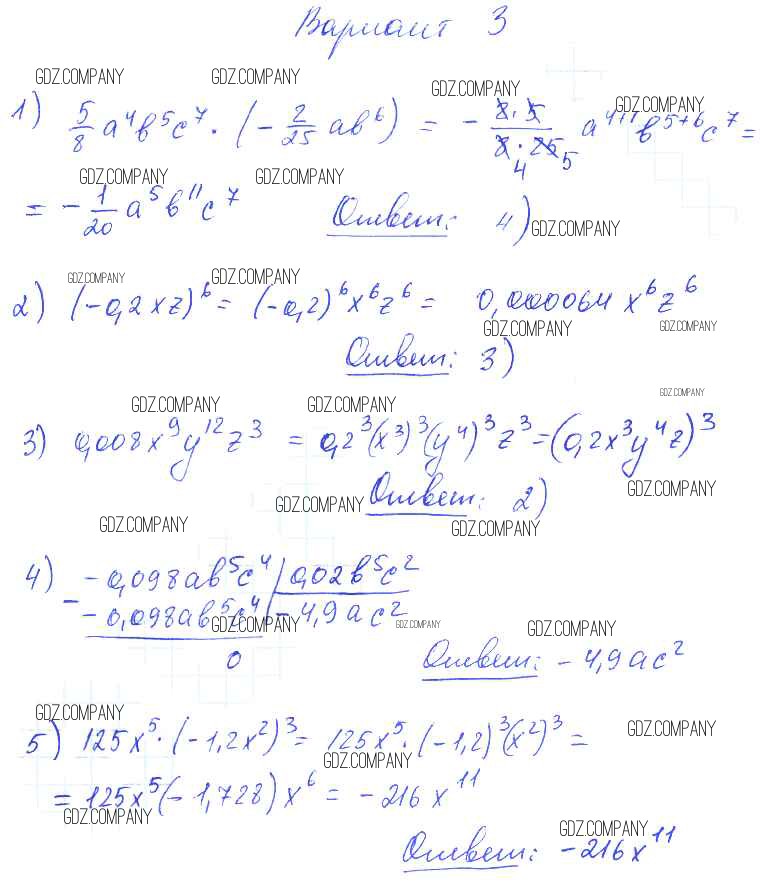 Вариант 3
GDZ.COMPANY GDZ.COMPANY GDZ.COMPANY GDZ.COMPANY
1) 5/8 a⁴b⁵c⁷ · (- 2/25 ab⁶) = - 2·5/8·25 4 5 a⁴⁺¹b⁵⁺⁶c⁷ =
GDZ.COMPANY GDZ.COMPANY
= - 1/20 a⁵b¹¹c⁷ Ответ: 4) GDZ.COMPANY
GDZ.COMPANY GDZ.COMPANY
2) (-0,2xz)⁶ = (-0,2)⁶x⁶z⁶ = 0,000064x⁶z⁶
GDZ.COMPANY GDZ.COMPANY
Ответ: 3)
GDZ.COMPANY GDZ.COMPANY GDZ.COMPANY
3) 0,008x⁹y¹²z³ = 0,2³(x³)³(y⁴)³z³ = (0,2x³y⁴z)³
GDZ.COMPANY Ответ: 2) GDZ.COMPANY
GDZ.COMPANY GDZ.COMPANY
4) - -0,098ab⁵c⁴ | 0,02b⁵c²
-0,098ab⁵c⁴ | -4,9ac²
GDZ.COMPANY GDZ.COMPANY GDZ.COMPANY
0 Ответ: -4,9ac²
GDZ.COMPANY GDZ.COMPANY
5) 125x⁵·(-1,2x²)³ = 125x⁵·(-1,2)³(x²)³ =
GDZ.COMPANY
= 125x⁵(-1,728)x⁶ = -216x¹¹
GDZ.COMPANY GDZ.COMPANY
Ответ: -216x¹¹